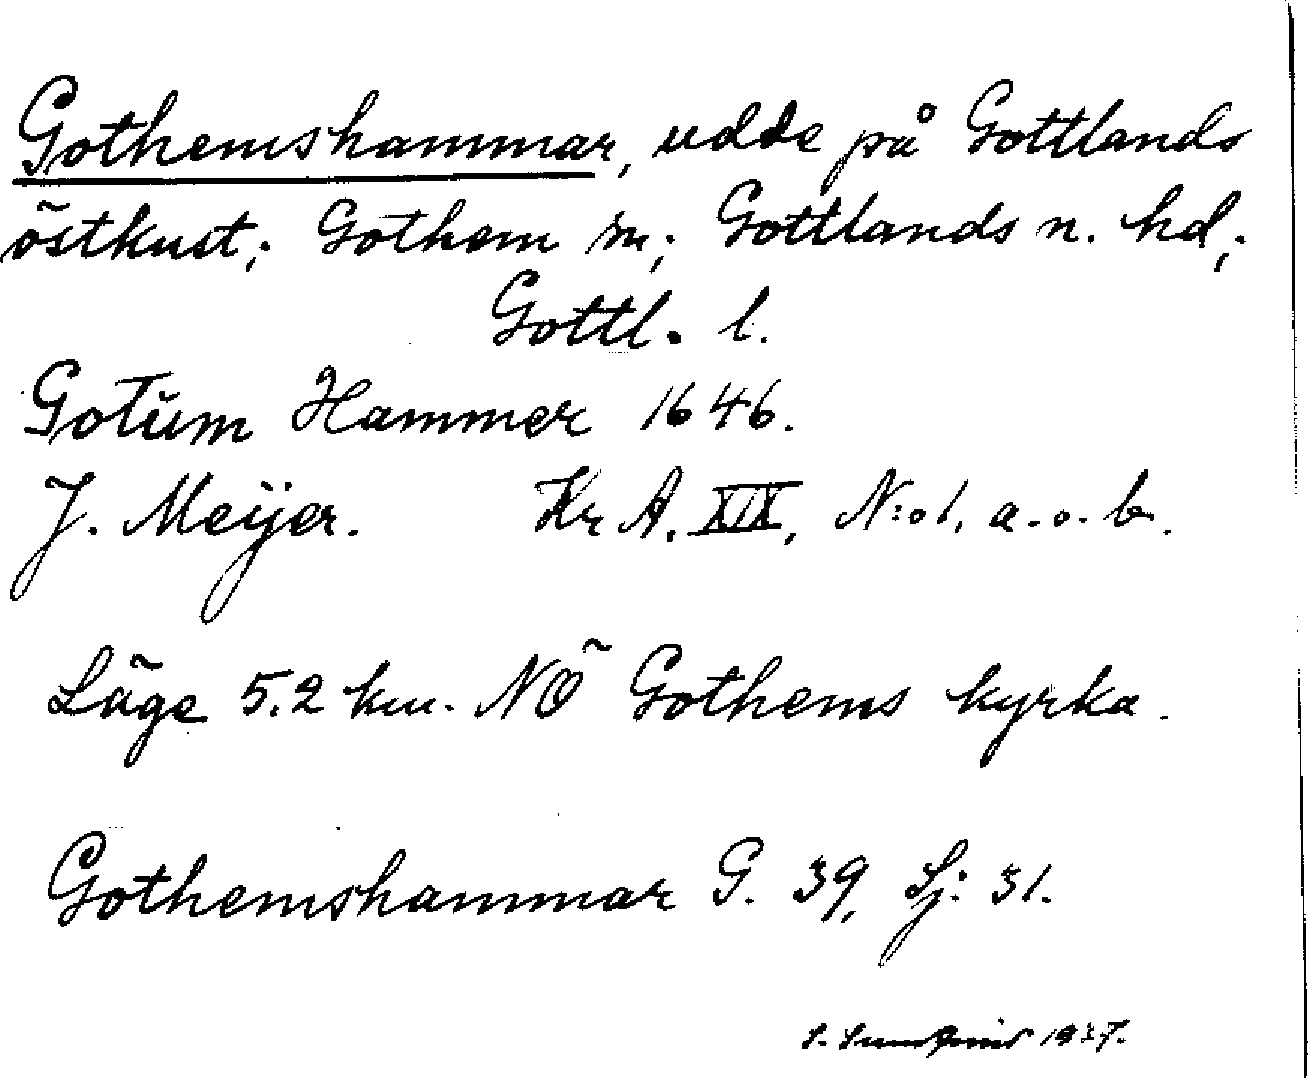 Gothemshammar, udde på Gottlands
östkust; Gothem sn; Gottlands n. hd,;
Gottl. l.
Gotŭm Hammer 1646.
J. Meÿer. Kr A. XIX, N:o 1. a. o. b.
Läge 5.2 km. NÖ Gothems kyrka.
Gothemshammar G. 39, Sj: 31.
S. 1937.